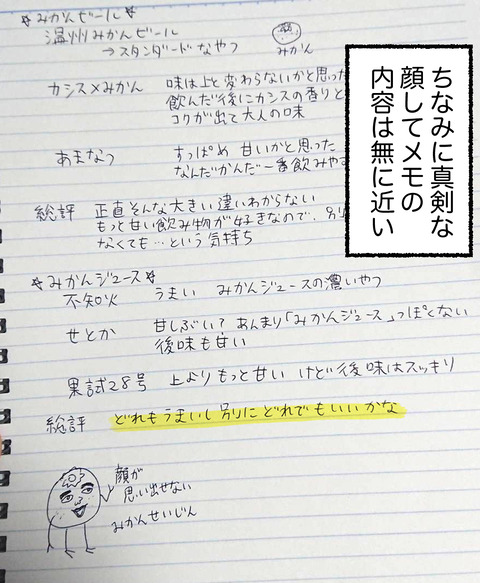 *みかんビール*
温州みかんビール
→スタンダードなやつ
みかん
ちなみに真剣な
顔してメモの
内容は無に近い
カシス×みかん 味は上と変わらないかと思った
飲んだ後にカシスの香りと
コクが出て大人の味
あまなつ すっぱめ 甘いかと思った
なんだかんだ一番飲みやす
総評 正直そんな大きい違いわからない
もっと甘い飲み物が好きなので、別
なくても…という気持ち
*みかんジュース*
不知火 うまい みかんジュースの濃いやつ
せとか 甘しぶい? あんまり「みかんジュース」っぽくない
後味も甘い
果試28号 上よりもっと甘い けど後味はスッキリ
総評 どれもうまいし別にどれでもいいかな
顔が
思い出せない
みかんせいじん